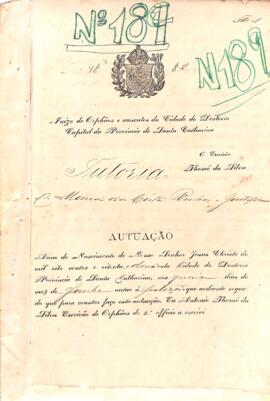 Nº 189
Nº 189
18 82
Juizo de Orphãos e ausentes da Cidade do Desterro
Capital da Provincia de Santa Catharina
O Escrivão
Thomé da Silva
Tutoria
Maria da Costa
AUTUAÇÃO
Anno do Nascimento de Nosso Senhor Jesus Christo de
mil oito centos e oitenta e dous nesta Cidade do Desterro
Provincia de Santa Catharina, aos quinze dias do
mez de Junho autuo a petição que adiante segue
do que para constar faço esta autuação. Eu Antonio Thomé da
Silva Escrivão de Orphãos de 2º officio o escrivi